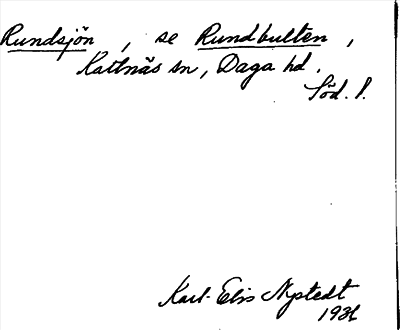 Rundsjön, se Rundbulten,
Kattnäs sn, Daga hd.
Söd. l.
Karl-Elis Nystedt